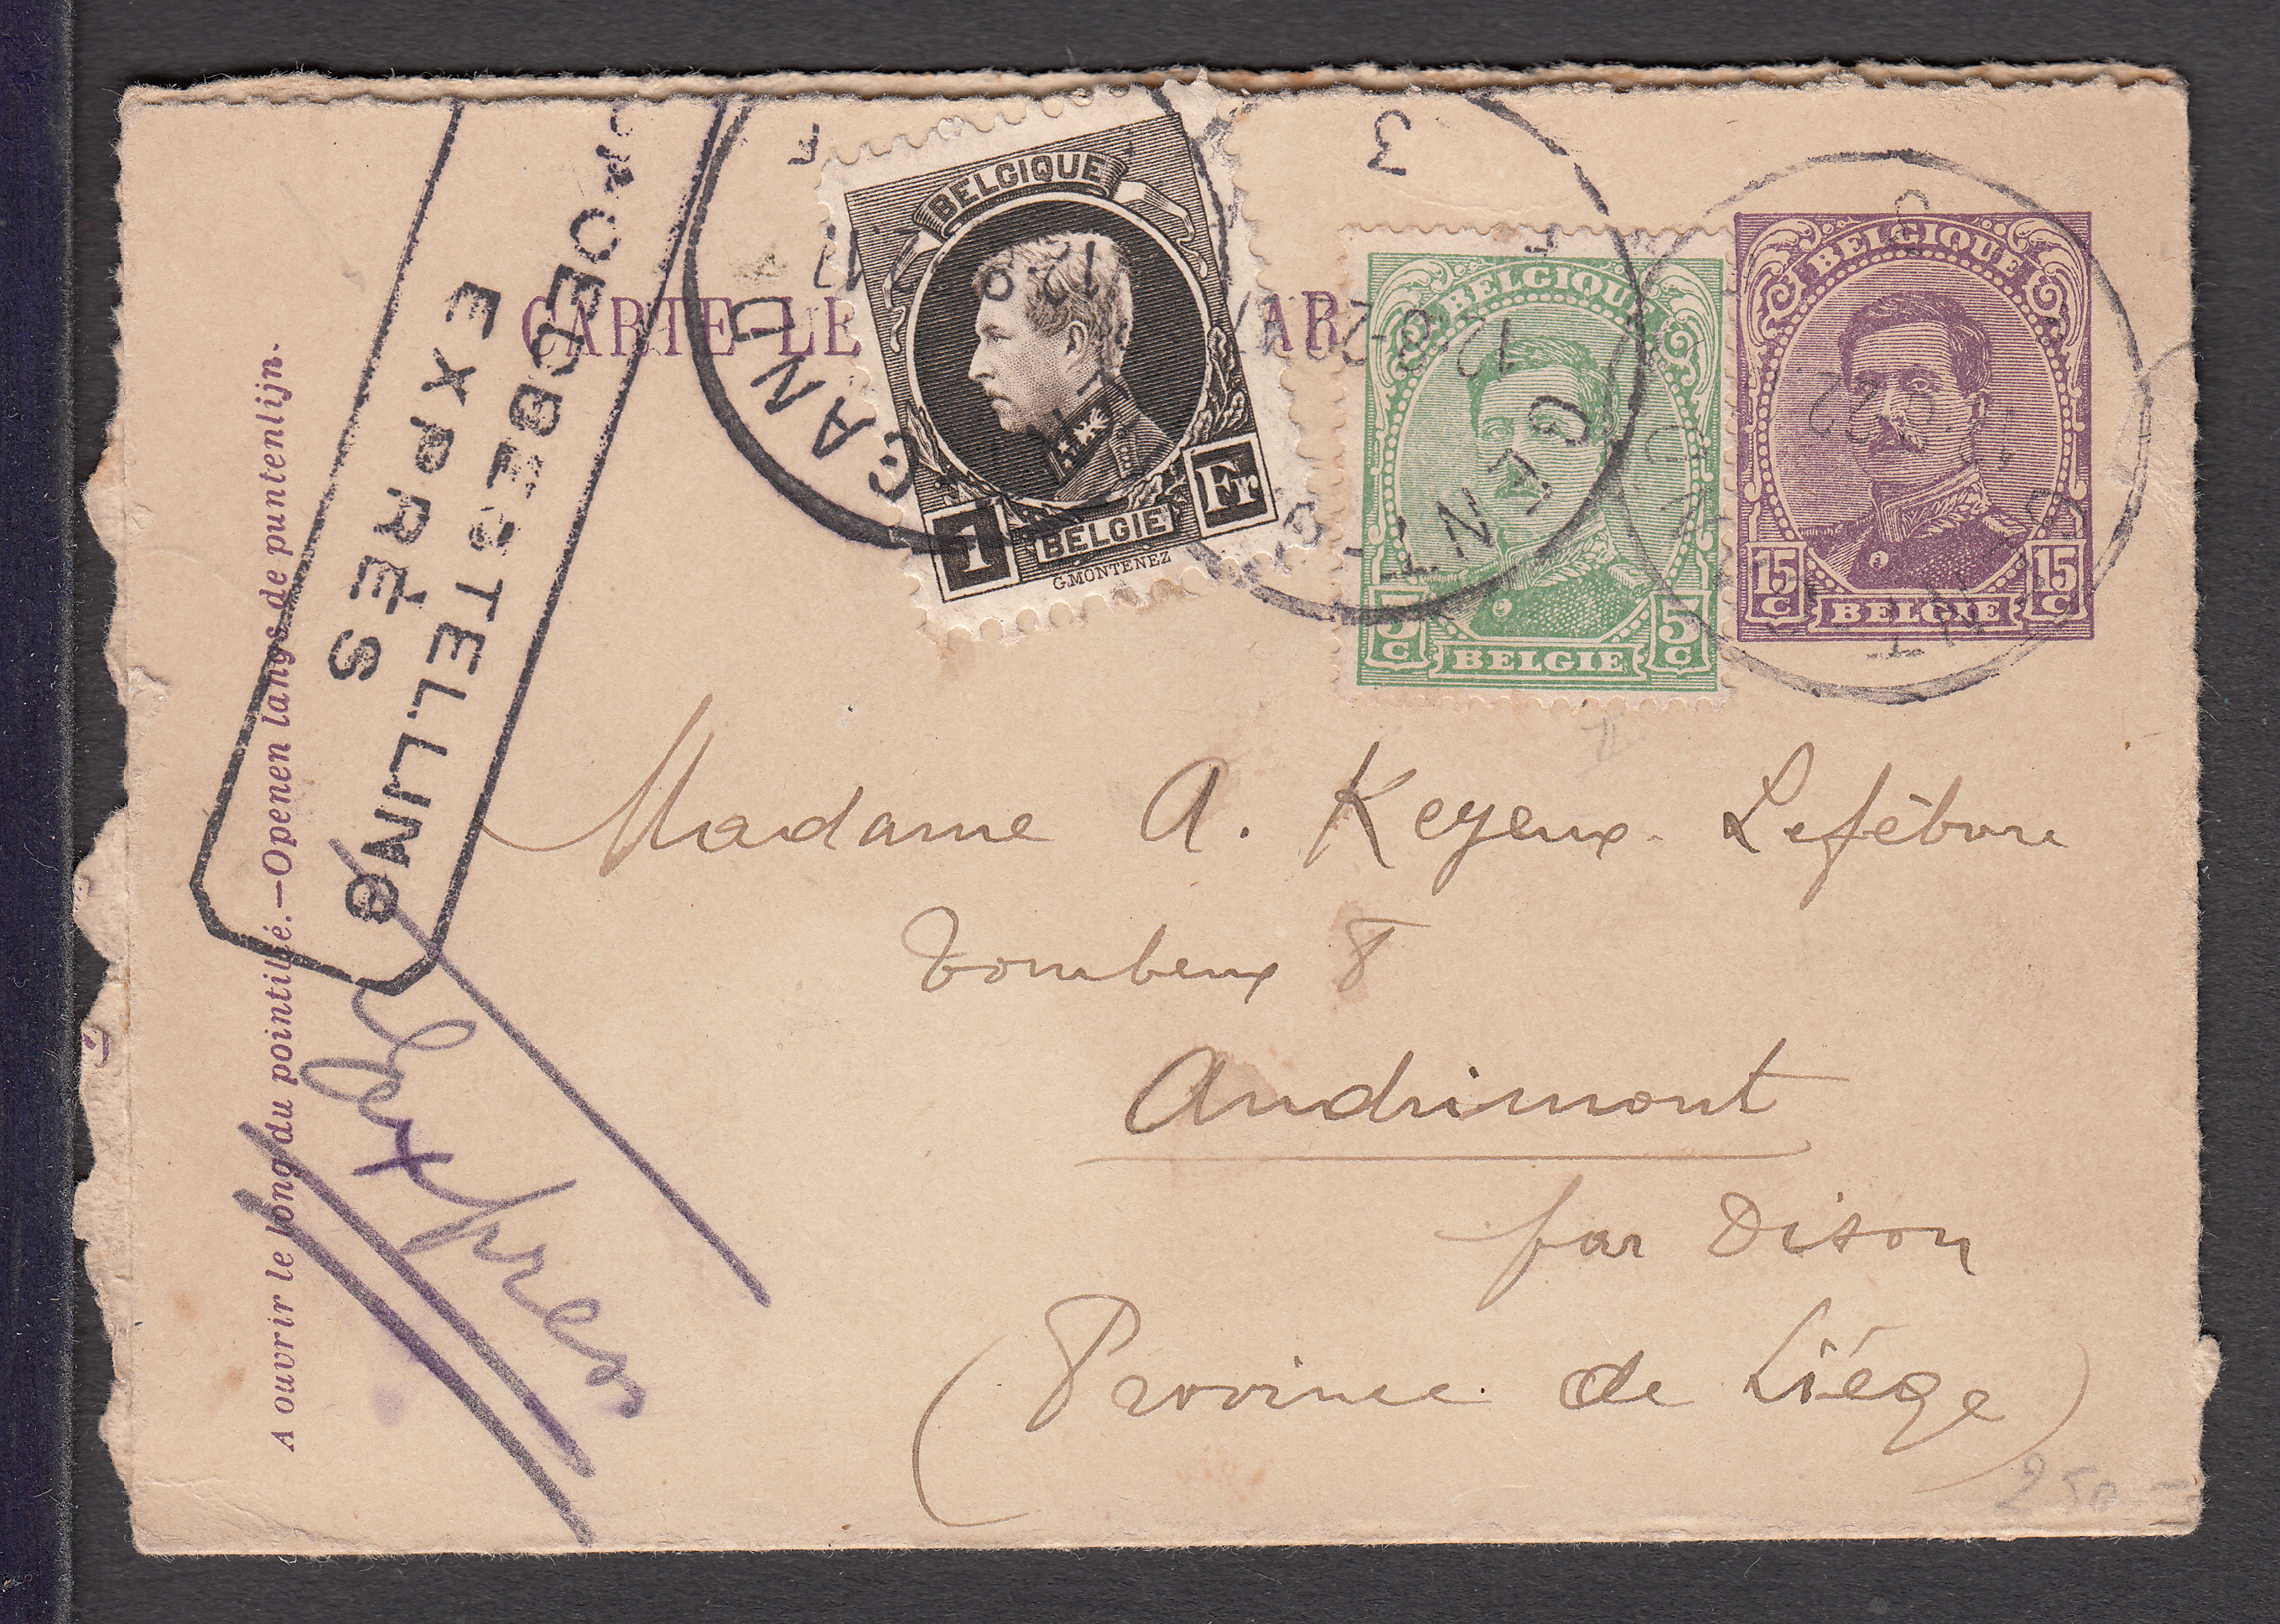 BELGIQUE
1 Fr
BELGIE
G.MONTENEZ
BELGIQUE
5 C 5 C
BELGIE
BELGIQUE
15 C 15 C
BELGIE
CARTE-LE
GAND
3
GENT
SPOEDBESTELLING
EXPRÈS
A ouvrir le long du pointillé.—Openen langs de puntenlijn.
Exprès
Madame A. Keyeux-Lefèbvre
Tombeux 8
Andrimont
par Dison
(Province de Liége)
250-